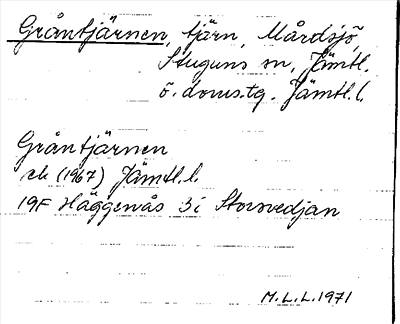 Gråntjärnen, tjärn, Mårdsjö,
Stuguns sn, Jämtl.
ö. doms.tg. Jämtl. l.
Gråntjärnen
ek (1967) Jämtl. l.
19F Häggenås 3i Storsvedjan
M.L.L. 1971